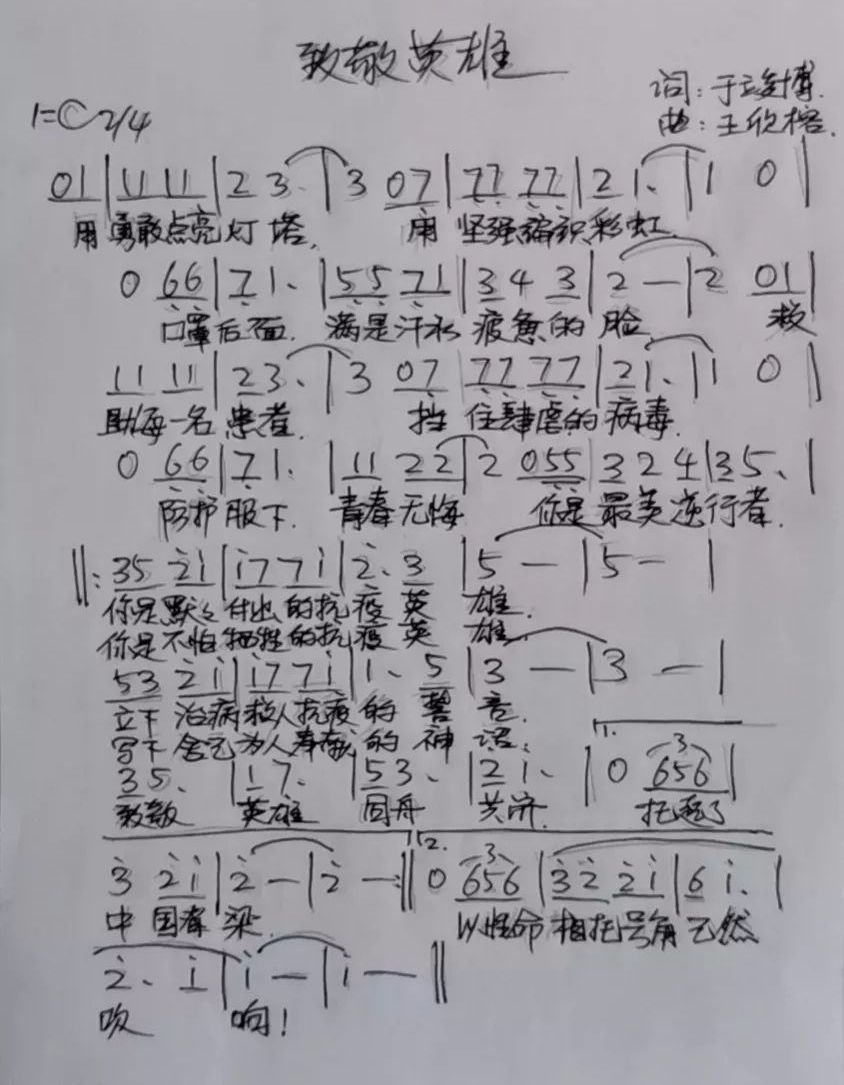 致敬英雄
词:于
1=C 2/4
曲:王欣榕.
01|11 11|2 3.|3 07|77 77|2 1.|1 0|
用 勇敢点亮灯塔, 用 坚强编织彩虹.
0 66|71.|55 71|3 4 3|2 —|2 01|
口罩后面. 满是汗水 疲惫的 脸 救
11 11|23.|3 07 77 77|21.|1 0|
助每一名 患者. 挡 住肆虐的 病毒.
0 66|71.|11 22|2 055|3 2 4|35.|
防护 服下. 青春无悔 你是 最美 逆行者.
‖: 35 2̇1|i̇77i̇|2̇. 3|5 —|5 — |
你是默々付出的抗疫 英 雄.
你是不怕牺牲的抗疫 英 雄.
53 2̇i̇|i̇77i̇|1. 5|3 —|3 —|
立下 治病救人抗疫的 誓 言.
写下 舍己为人奉献的 神 话.
35. |17. |53. |21. |1. 0 3 656|
致敬 英雄 同舟 共济. 托起了
3̇ 2̇i̇|2̇ —|2̇ —:‖2. 0 3 656|3̇2̇ 2̇i̇|6 i̇. |
中 国脊 梁. 以性命 相托号角 已然
2̇. i̇|i̇ —|i̇ —‖
吹 响!